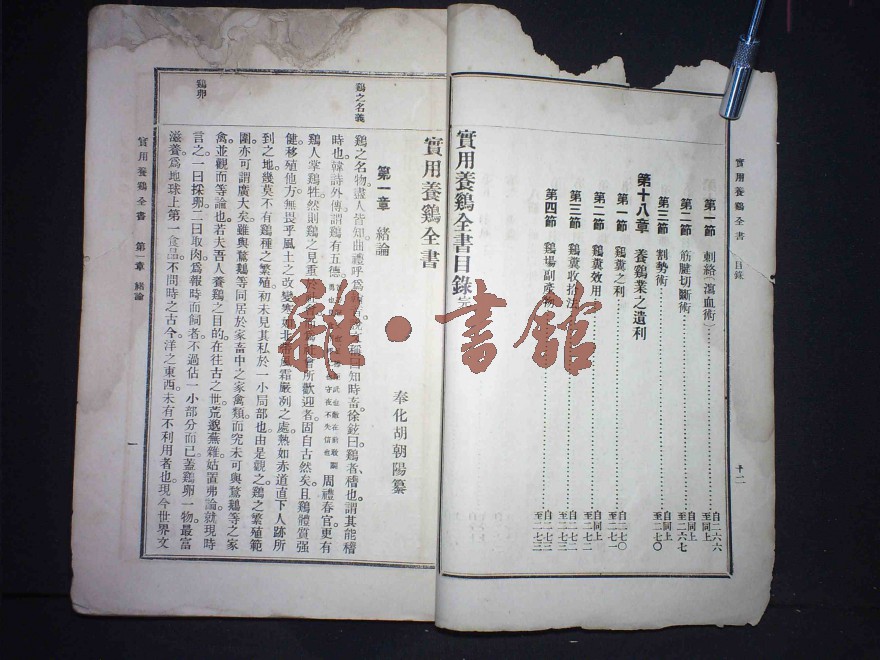 實用養鷄全書 目錄
十二
第一節 刺絡(瀉血術) 自二六六至同上
第二節 筋腱切斷術 自同上至二六七
第三節 割勢術 自同上至二七〇
第十八章 養鷄業之遺利
第一節 鷄糞之利 自二七〇至二七一
第二節 鷄糞效用 自二七一至二七二
第三節 鷄糞收拾法 自二七二至二七三
第四節 鷄場副產物 自二七三至二七三
實用養鷄全書目錄 完
實用養鷄全書
奉化胡朝陽纂
第一章 緒論
鷄之名義
鷄之名物。盡人皆知。曲禮呼爲 說文稱曰知時畜。徐鉉曰鷄者。稽也。謂其能稽
時也。韓詩外傳。謂鷄有五德。 守夜不失信也 周禮春官。更有
鷄人掌鷄牲。然則鷄之見重於 會所歡迎者。固自古然矣。且鷄體質强
健。移殖他方。無畏乎風土之改變。寒如北 風霜嚴冽之處。熱如赤道直下。人跡所
到之地。幾莫不有鷄種之繁殖。初未見其私於一小局部也。由是觀之。鷄之繁殖範
圍。亦可謂廣大矣。雖與鶩鵝等同居於家畜中之家禽類。而究未可與鶩鵝等之家
禽並觀而等論也。若夫吾人養鷄之目的。在往古之世。荒邈蕪雜。姑置弗論。就現時
鷄卵
言之。一曰採卵。二曰取肉。爲報時而飼者。不過佔一小部分而已。蓋鷄卵一物。最富
滋養。爲地球上第一食品。不問時之古今。洋之東西。未有不利用者也。現今世界文
實用養鷄全書 第一章 緒論
一
雜·書館